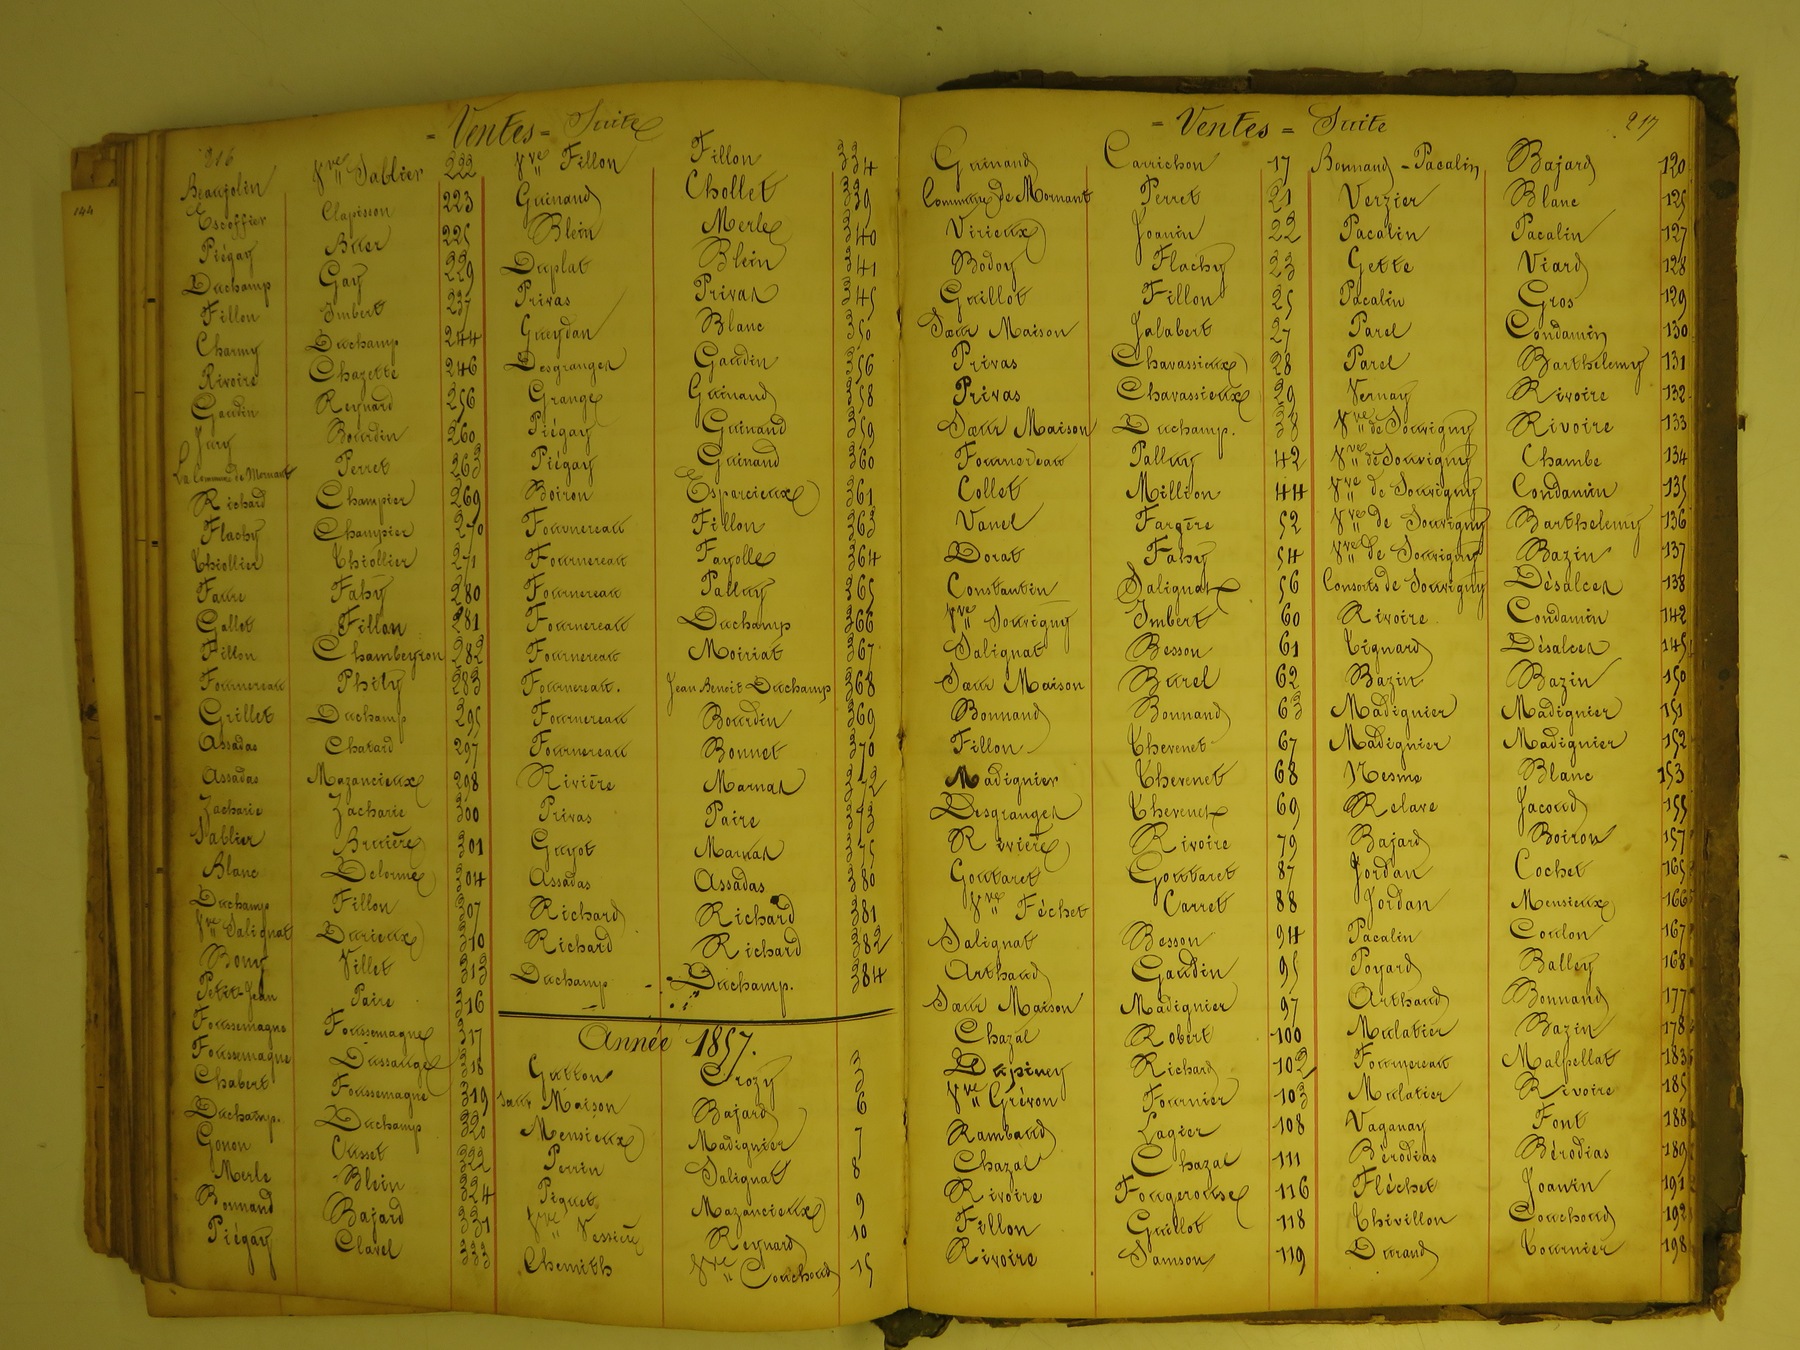 144
= Ventes = Suite
216
Beaujolin Vve Sablier 222
Escoffier Clapisson 223
Piégay Buer 225
Duchamp Gay 229
Fillon Imbert 237
Charmy Duchamp 244
Rivoire Chazette 246
Gaudin Reynard 256
Jury Bourdin 260
La Commune de Mornant Perret 263
Richard Champier 269
Flachy Champier 270
Thiollier Thiollier 271
Faure Fahy 280
Gallet Fillon 281
Fillon Chambeyron 282
Fournereau Phily 283
Grillet Duchamp 295
Assadas Chatard 297
Assadas Mazancieux 298
Zacharie Zacharie 300
Sablier Bruière 301
Blanc Delorme 304
Duchamp Fillon 307
Vve Salignat Durieux 310
Bony Villet 313
Petit-Jean Paire 316
Foussemagne Foussemagne 317
Foussemagne Dussauge 318
Chabert Foussemagne 319
Duchamp. Duchamp 320
Gonon Ousset 322
Merle Blein 324
Bonnand Bajard 331
Piégay Clavel 333
Vve Fillon Fillon 334
Guinand Chollet 339
Blein Merle 340
Duplat Blein 341
Privas Privas 345
Gueydan Blanc 350
Desgranges Gaudin 356
Grange Guinand 358
Piégay Guinand 359
Piégay Guinand 360
Boiron Esparcieux 361
Fournereau Fillon 363
Fournereau Fayolle 364
Fournereau Palluy 365
Fournereau Duchamp 366
Fournereau Moiriat 367
Fournereau. Jean Benoit Duchamp 368
Fournereau Bourdin 369
Fournereau Bonnet 370
Rivière Marnas 372
Privas Paire 373
Guyot Marnas 375
Assadas Assadas 380
Richard Richard 381
Richard Richard 382
Duchamp Duchamp. 384
Année 1857.
Gutton Crozy 3
Sœur Maison Bajard 6
Mensieux Madignier 7
Perrin Salignat 8
Piquet Mazancieux 9
Vve Vessière Reynard 10
Chemith Vve Couchoud 15
= Ventes = Suite
217
Guinand Carrichon 17
Commune de Mornant Perret 21
Virieux Joanin 22
Bodoy Flachy 23
Guillot Fillon 25
Sœur Maison Jalabert 27
Privas Chavassieux 28
Privas Chavassieux 29
Sœur Maison Duchamp. 38
Fournereau Palluy 42
Collet Million 44
Vanel Fargère 52
Dorat Fahy 54
Constantin Salignat 56
Vve Souvigny Imbert 60
Salignat Besson 61
Sœur Maison Burel 62
Bonnand Bonnand 63
Fillon Thevenet 67
Madignier Thevenet 68
Desgranges Thevenet 69
Rivière Rivoire 79
Goutaret Goutaret 87
Vve Féchet Carret 88
Salignat Besson 94
Arthaud Gaudin 95
Sœur Maison Madignier 97
Chazal Robert 100
Dupiney Richard 102
Vve Grévon Fournier 103
Rambaud Lagier 108
Chazal Chazal 111
Rivoire Fougerouse 116
Fillon Guillot 118
Rivoire Samson 119
Bonnand - Pacalin Bajard 120
Verzier Blanc 125
Pacalin Pacalin 127
Gette Viard 128
Pacalin Gros 129
Parel Condamin 130
Parel Barthelemy 131
Vernay Rivoire 132
Vve de Souvigny Rivoire 133
Vve de Souvigny Chambe 134
Vve de Souvigny Condamin 135
Vve de Souvigny Barthelemy 136
Vve de Souvigny Bazin 137
Consorts de Souvigny Désalces 138
Rivoire Condamin 142
Tignard Désalces 145
Bazin Bazin 150
Madignier Madignier 151
Madignier Madignier 152
Nesme Blanc 153
Relave Jacoud 155
Bajard Boiron 157
Jordan Cochet 165
Jordan Mensieux 166
Pacalin Coulon 167
Poyard Balley 168
Arthaud Bonnand 177
Mulatier Bazin 178
Fournereau Malpellat 183
Mulatier Rivoire 185
Vaganay Font 188
Bérodias Bérodias 189
Fléchet Joanin 191
Thivillon Couchoud 192
Durand Tournier 198